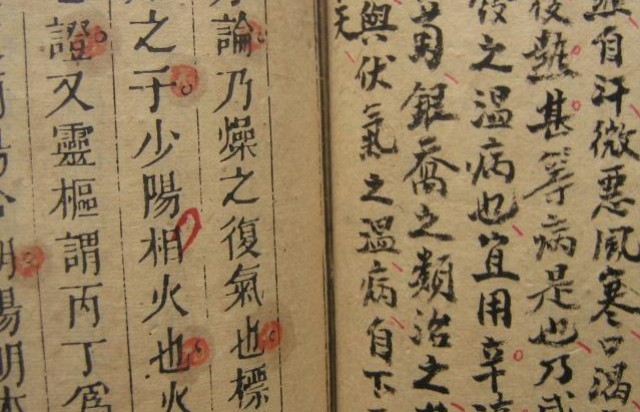 自汗微惡風寒口渴
後熱甚等病是也乃
之温病也宜用辛
萄銀喬之類治之
與伏氣之温病自下
論乃燥之復氣也標
之于少陽相火也火
證又靈樞謂丙丁爲
明陽明本